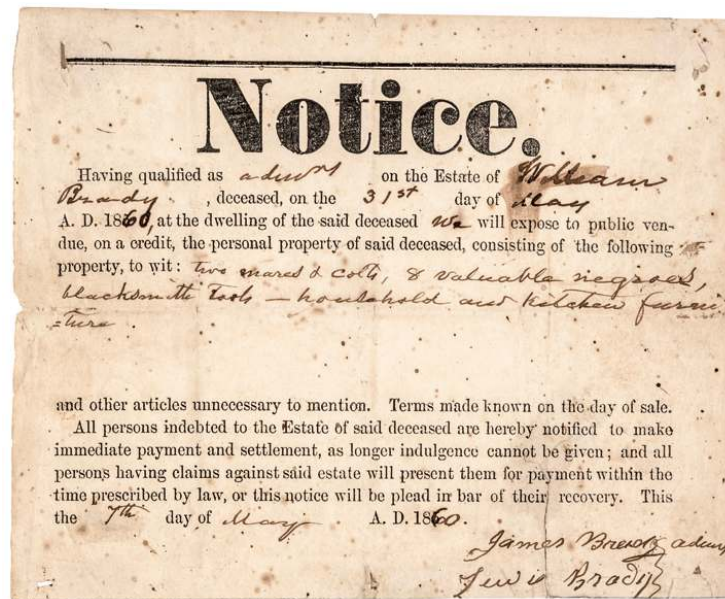 Notice.
Having qualified as admrs on the Estate of William
Brady , deceased, on the 31st day of May
A. D. 1860, at the dwelling of the said deceased we will expose to public ven-
due, on a credit, the personal property of said deceased, consisting of the following
property, to wit: two mares & colts, 8 valuable negroes,
blacksmith tools – household and kitchen furni
=ture
and other articles unnecessary to mention. Terms made known on the day of sale.
All persons indebted to the Estate of said deceased are hereby notified to make
immediate payment and settlement, as longer indulgence cannot be given; and all
persons having claims against said estate will present them for payment within the
time prescribed by law, or this notice will be plead in bar of their recovery. This
the 7th day of May A. D. 1860.
James Brady admrs
Lewis Brady